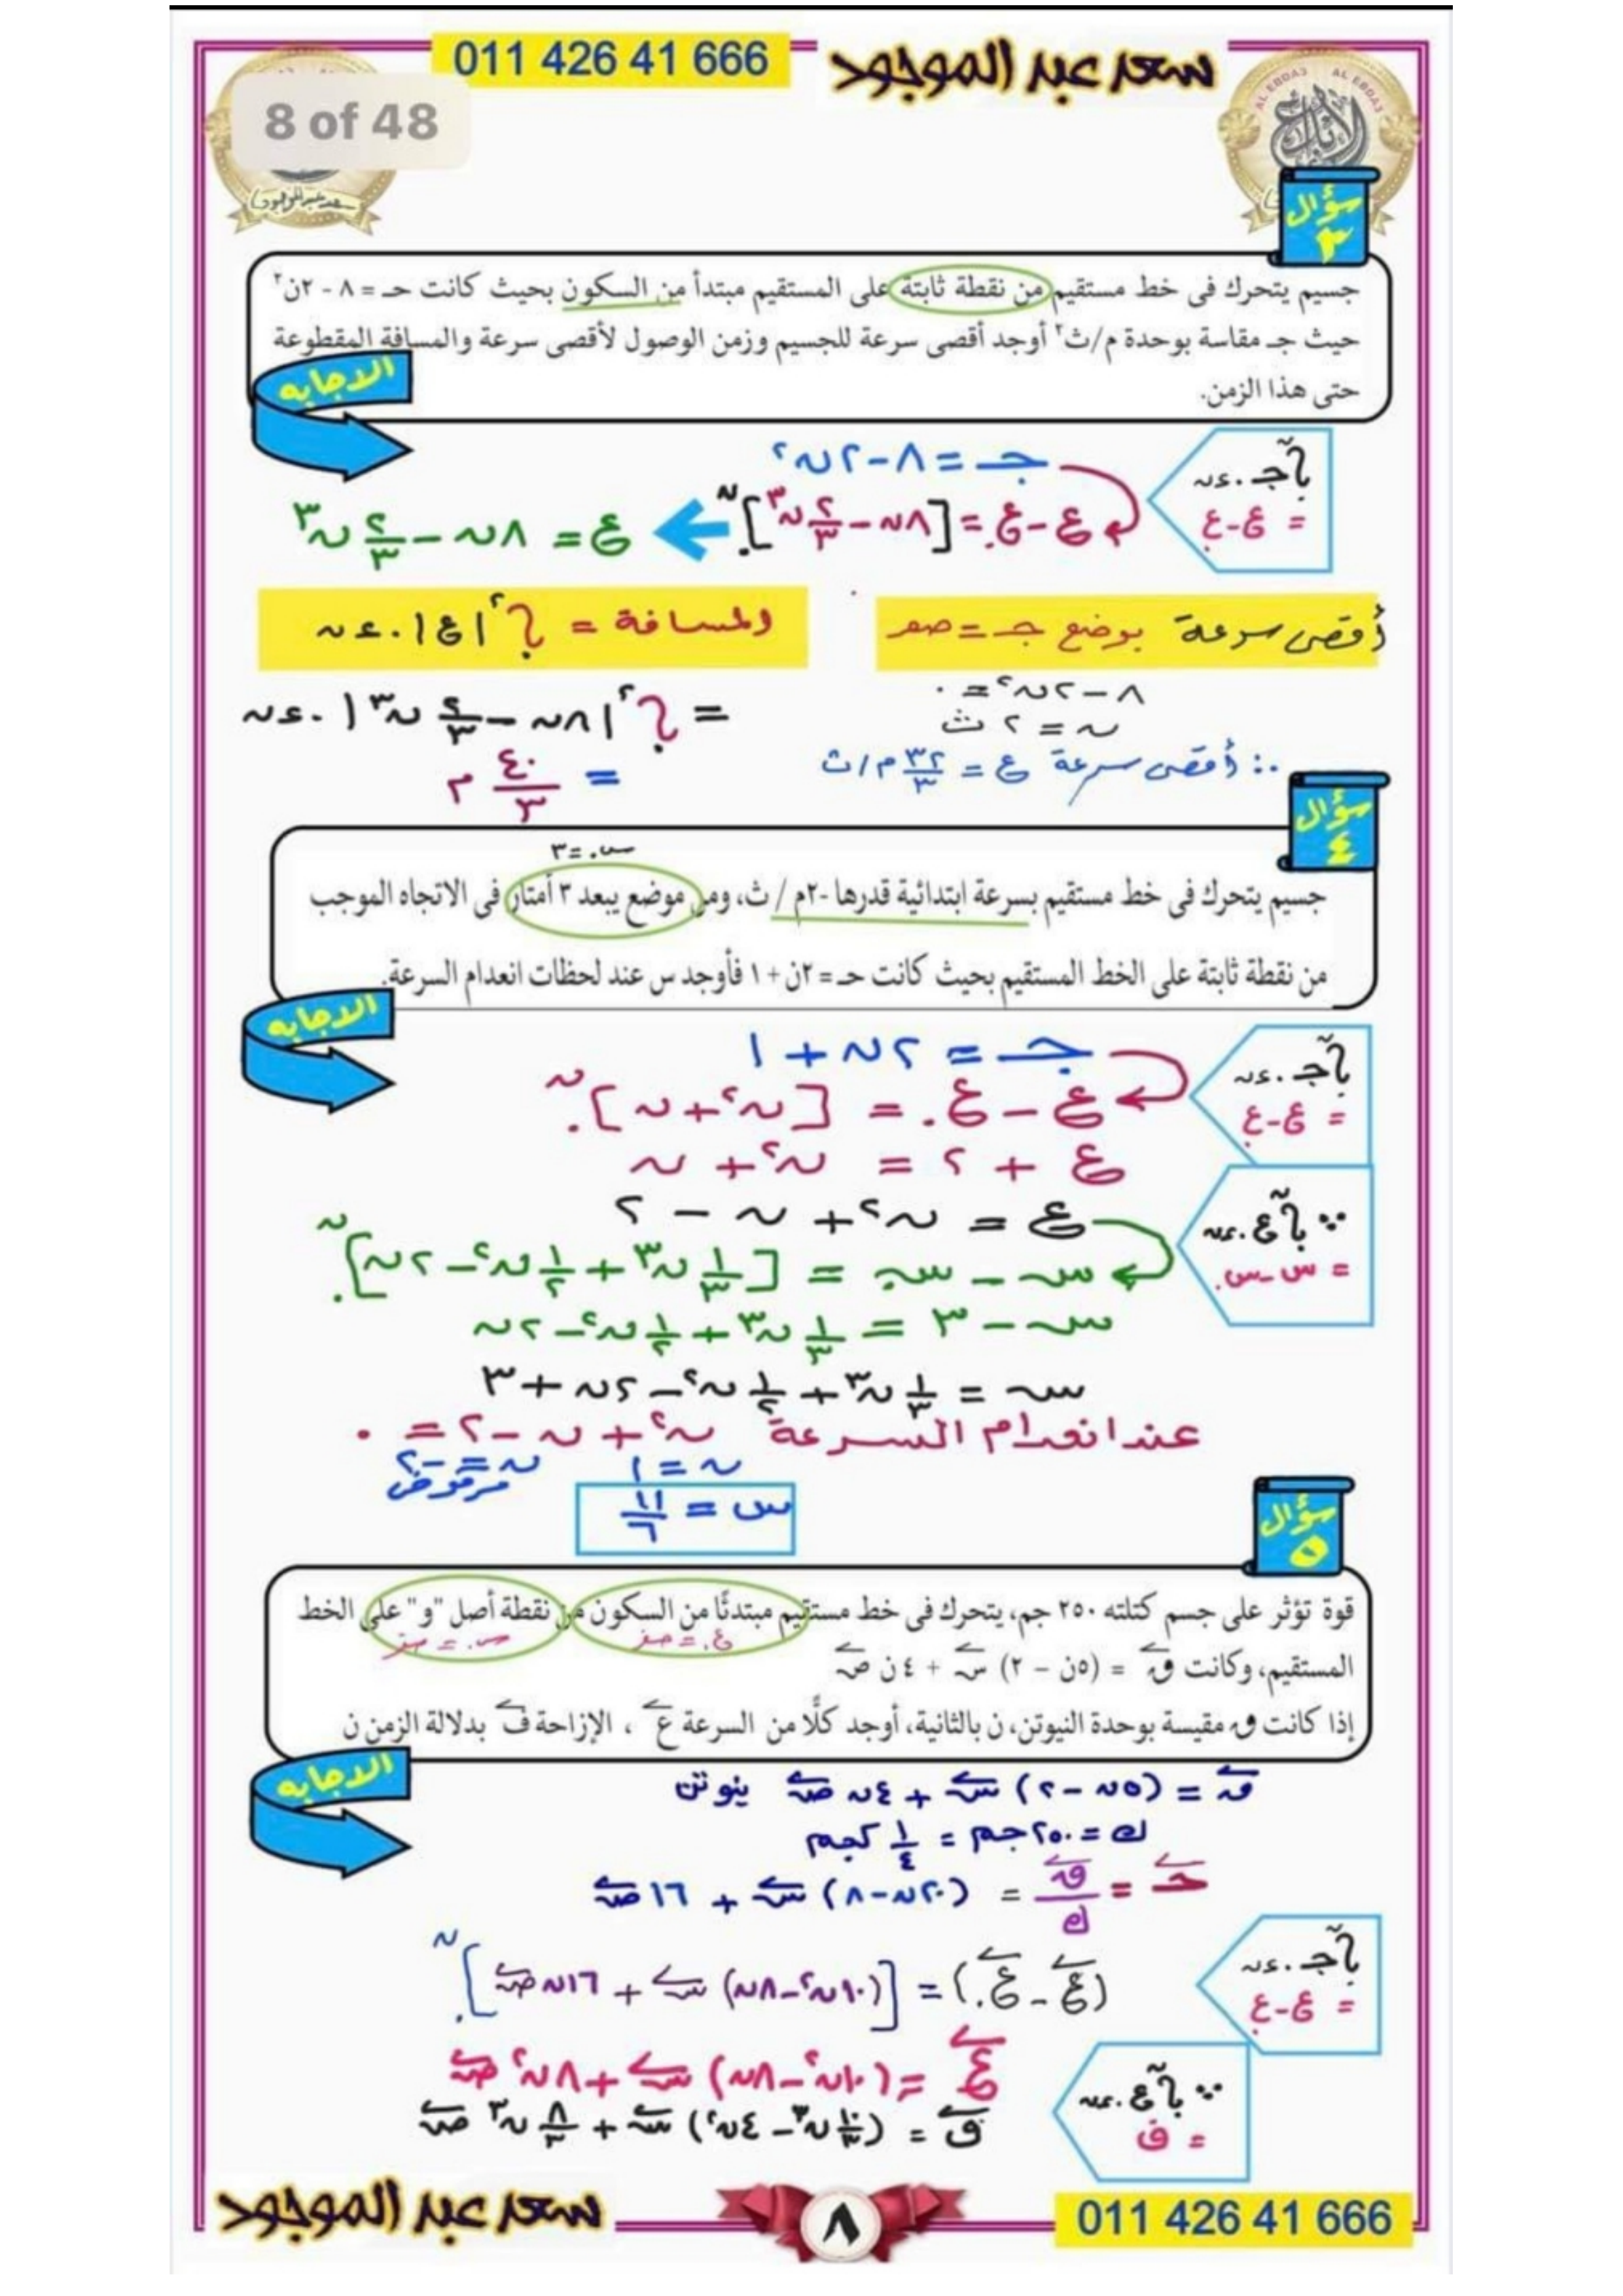 011 426 41 666
سعد عبد الموجود
8 of 48
AL EBDA3 AL EBDA3
سؤال ٣
جسيم يتحرك فى خط مستقيم من نقطة ثابتة على المستقيم مبتدأ من السكون بحيث كانت حـ = ٨ - ٢ن٢
حيث جـ مقاسة بوحدة م/ث٢ أوجد أقصى سرعة للجسيم وزمن الوصول لأقصى سرعة والمسافة المقطوعة
حتى هذا الزمن.
الاجابه
جـ = ٨ - ٢ن٢
∫جـ . ءن
= ع - ع.
ع - ع. = [٨ن - ٢/٣ ن٣]
ع = ٨ن - ٢/٣ ن٣
أقصى سرعة بوضع جـ = صفر
المسافة = ∫|ع| . ءن
٨ - ٢ن٢ = ٠
= ∫|٨ن - ٢/٣ ن٣| . ءن
ن = ٢ ث
∴ أقصى سرعة ع = ٣٢/٣ م/ث
= ٤٠/٣ م
سؤال ٤
س. = ٣
جسيم يتحرك فى خط مستقيم بسرعة ابتدائية قدرها -٢م / ث، ومن موضع يبعد ٣ أمتار فى الاتجاه الموجب
من نقطة ثابتة على الخط المستقيم بحيث كانت حـ = ٢ن + ١ فأوجد س عند لحظات انعدام السرعة.
الاجابه
جـ = ٢ن + ١
∫جـ . ءن
= ع - ع.
ع - ع. = [ن٢ + ن]
ع + ٢ = ن٢ + ن
ع = ن٢ + ن - ٢
∵ ∫ع . ءن
= س - س.
س - س. = [١/٣ ن٣ + ١/٢ ن٢ - ٢ن]
س - ٣ = ١/٣ ن٣ + ١/٢ ن٢ - ٢ن
س = ١/٣ ن٣ + ١/٢ ن٢ - ٢ن + ٣
عند انعدام السرعة ن٢ + ن - ٢ = ٠
ن = ١ ن = -٢
مرفوض
س = ١١/٦
سؤال ٥
قوة تؤثر على جسم كتلته ٢٥٠ جم، يتحرك فى خط مستقيم مبتدئًا من السكون من نقطة أصل "و" على الخط
ع. = صفر س. = صفر
المستقيم، وكانت ق = (٥ن - ٢) س + ٤ ن ص
إذا كانت ق مقيسة بوحدة النيوتن، ن بالثانية، أوجد كلًا من السرعة ع ، الإزاحة ف بدلالة الزمن ن
الاجابه
ق = (٥ن - ٢) س + ٤ن ص نيوتن
ك = ٢٥٠ جم = ١/٤ كجم
جـ = ق/ك = (٢٠ن - ٨) س + ١٦ ص
∫جـ . ءن
= ع - ع.
(ع - ع.) = [(١٠ن٢ - ٨ن) س + ١٦ن ص]
ع = (١٠ن٢ - ٨ن) س + ٨ن٢ ص
∵ ∫ع . ءن
= ف
ف = (١٠/٣ ن٣ - ٤ن٢) س + ٨/٣ ن٣ ص
سعد عبد الموجود
٨
011 426 41 666